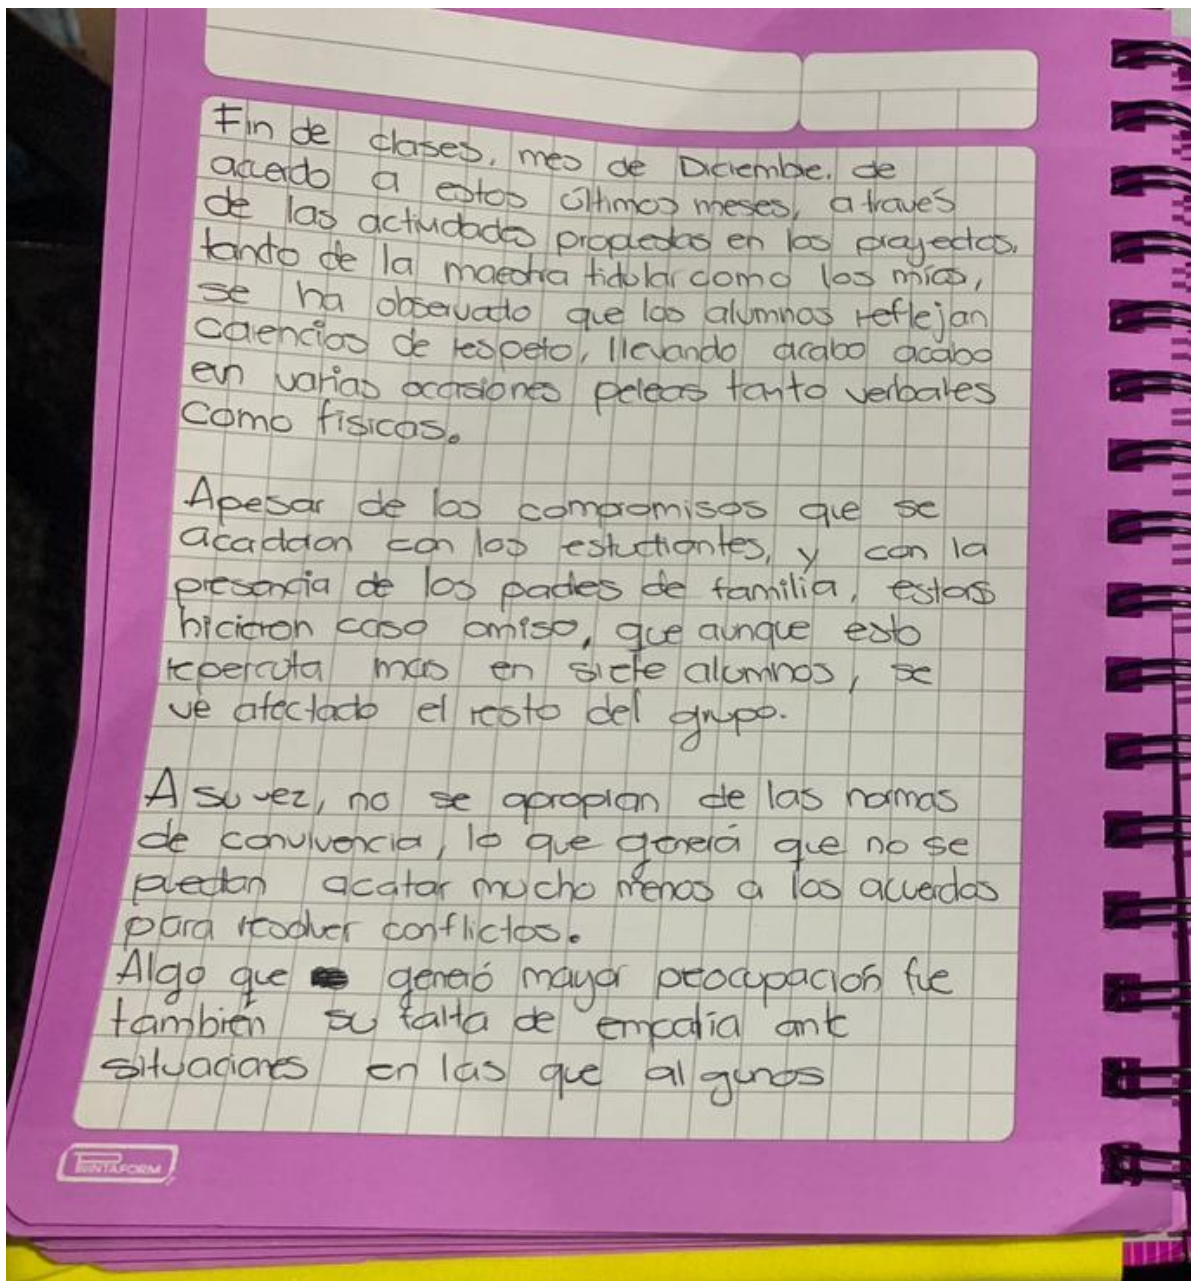 Fin de clases, mes de Diciembre. de
acuerdo a estos últimos meses, através
de las actividades propuestas en los proyectos,
tando de la maestra titular como los míos,
se ha observado que los alumnos reflejan
carencias de respeto, llevando acabo acabo
en varias ocasiones peleas tanto verbales
como físicas.
Apesar de los compromisos que se
acordaron con los estudiantes, y con la
presencia de los padres de familia, estos
hicieron caso omiso, que aunque esto
repercuta mas en siete alumnos, se
ve afectado el resto del grupo.
A su vez, no se apropian de las normas
de convivencia, lo que generá que no se
puedan acatar mucho menos a los acuerdos
para resolver conflictos.
Algo que generó mayor preocupación fue
también su falta de empatia ante
situaciones en las que algunos
PRINTAFORM